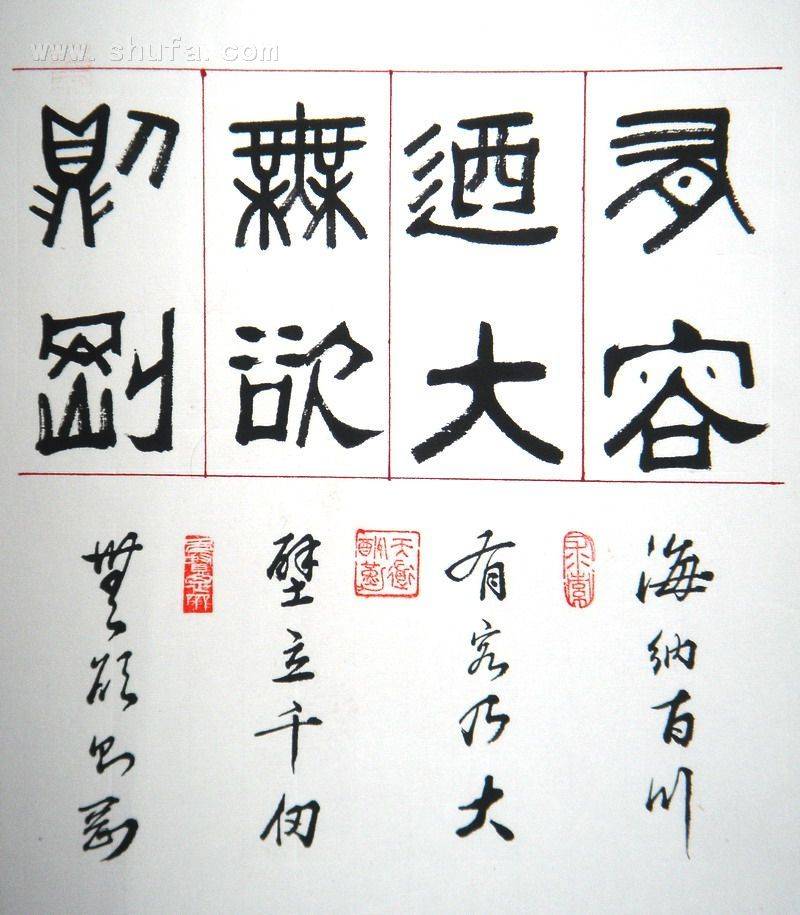 www.shufa.com
有容
迺大
無欲
則剛
海納百川
有容乃大
壁立千仞
無欲則剛